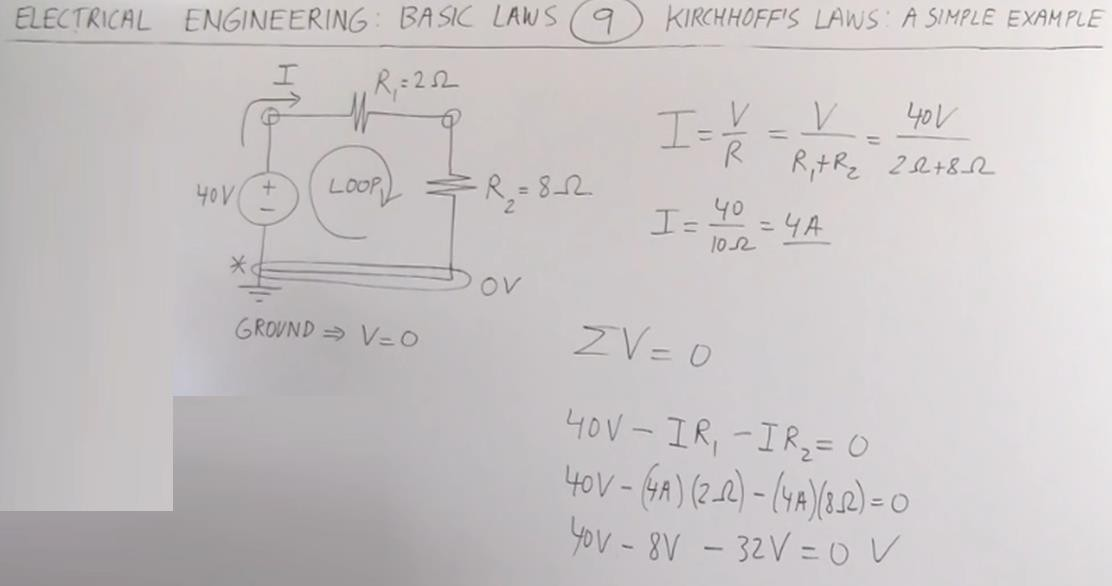 ELECTRICAL ENGINEERING: BASIC LAWS 9 KIRCHHOFF'S LAWS: A SIMPLE EXAMPLE
I
R₁=2Ω
40V
+
−
LOOP
R₂=8Ω
*
0V
GROUND ⇒ V=0
I = V/R = V/(R₁+R₂) = 40V/(2Ω+8Ω)
I = 40/10Ω = 4A
ΣV = 0
40V − IR₁ − IR₂ = 0
40V − (4A)(2Ω) − (4A)(8Ω) = 0
40V − 8V − 32V = 0 V